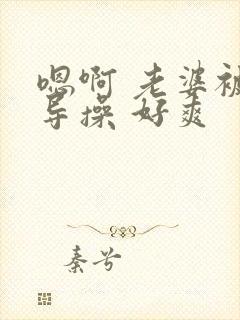 嗯啊 老婆被
导操 好爽
秦兮